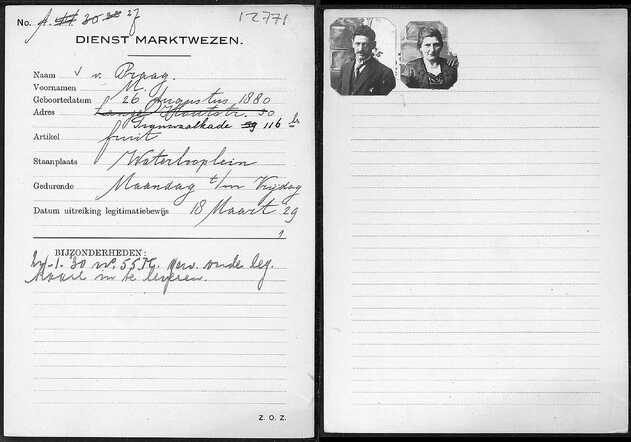 No. A. 30 27
12771
DIENST MARKTWEZEN.
Naam v. Praag.
Voornamen M.
Geboortedatum 26 Augustus 1880
Adres Lange Houtstr. 50
59 116 hs
Artikel fruit
Staanplaats Waterlooplein
Gedurende Maandag t/m Vrijdag
Datum uitreiking legitimatiebewijs 18 Maart 29
BIJZONDERHEDEN:
-1. 30 no. oude leg.
kaart in te leveren.
Z. O. Z.